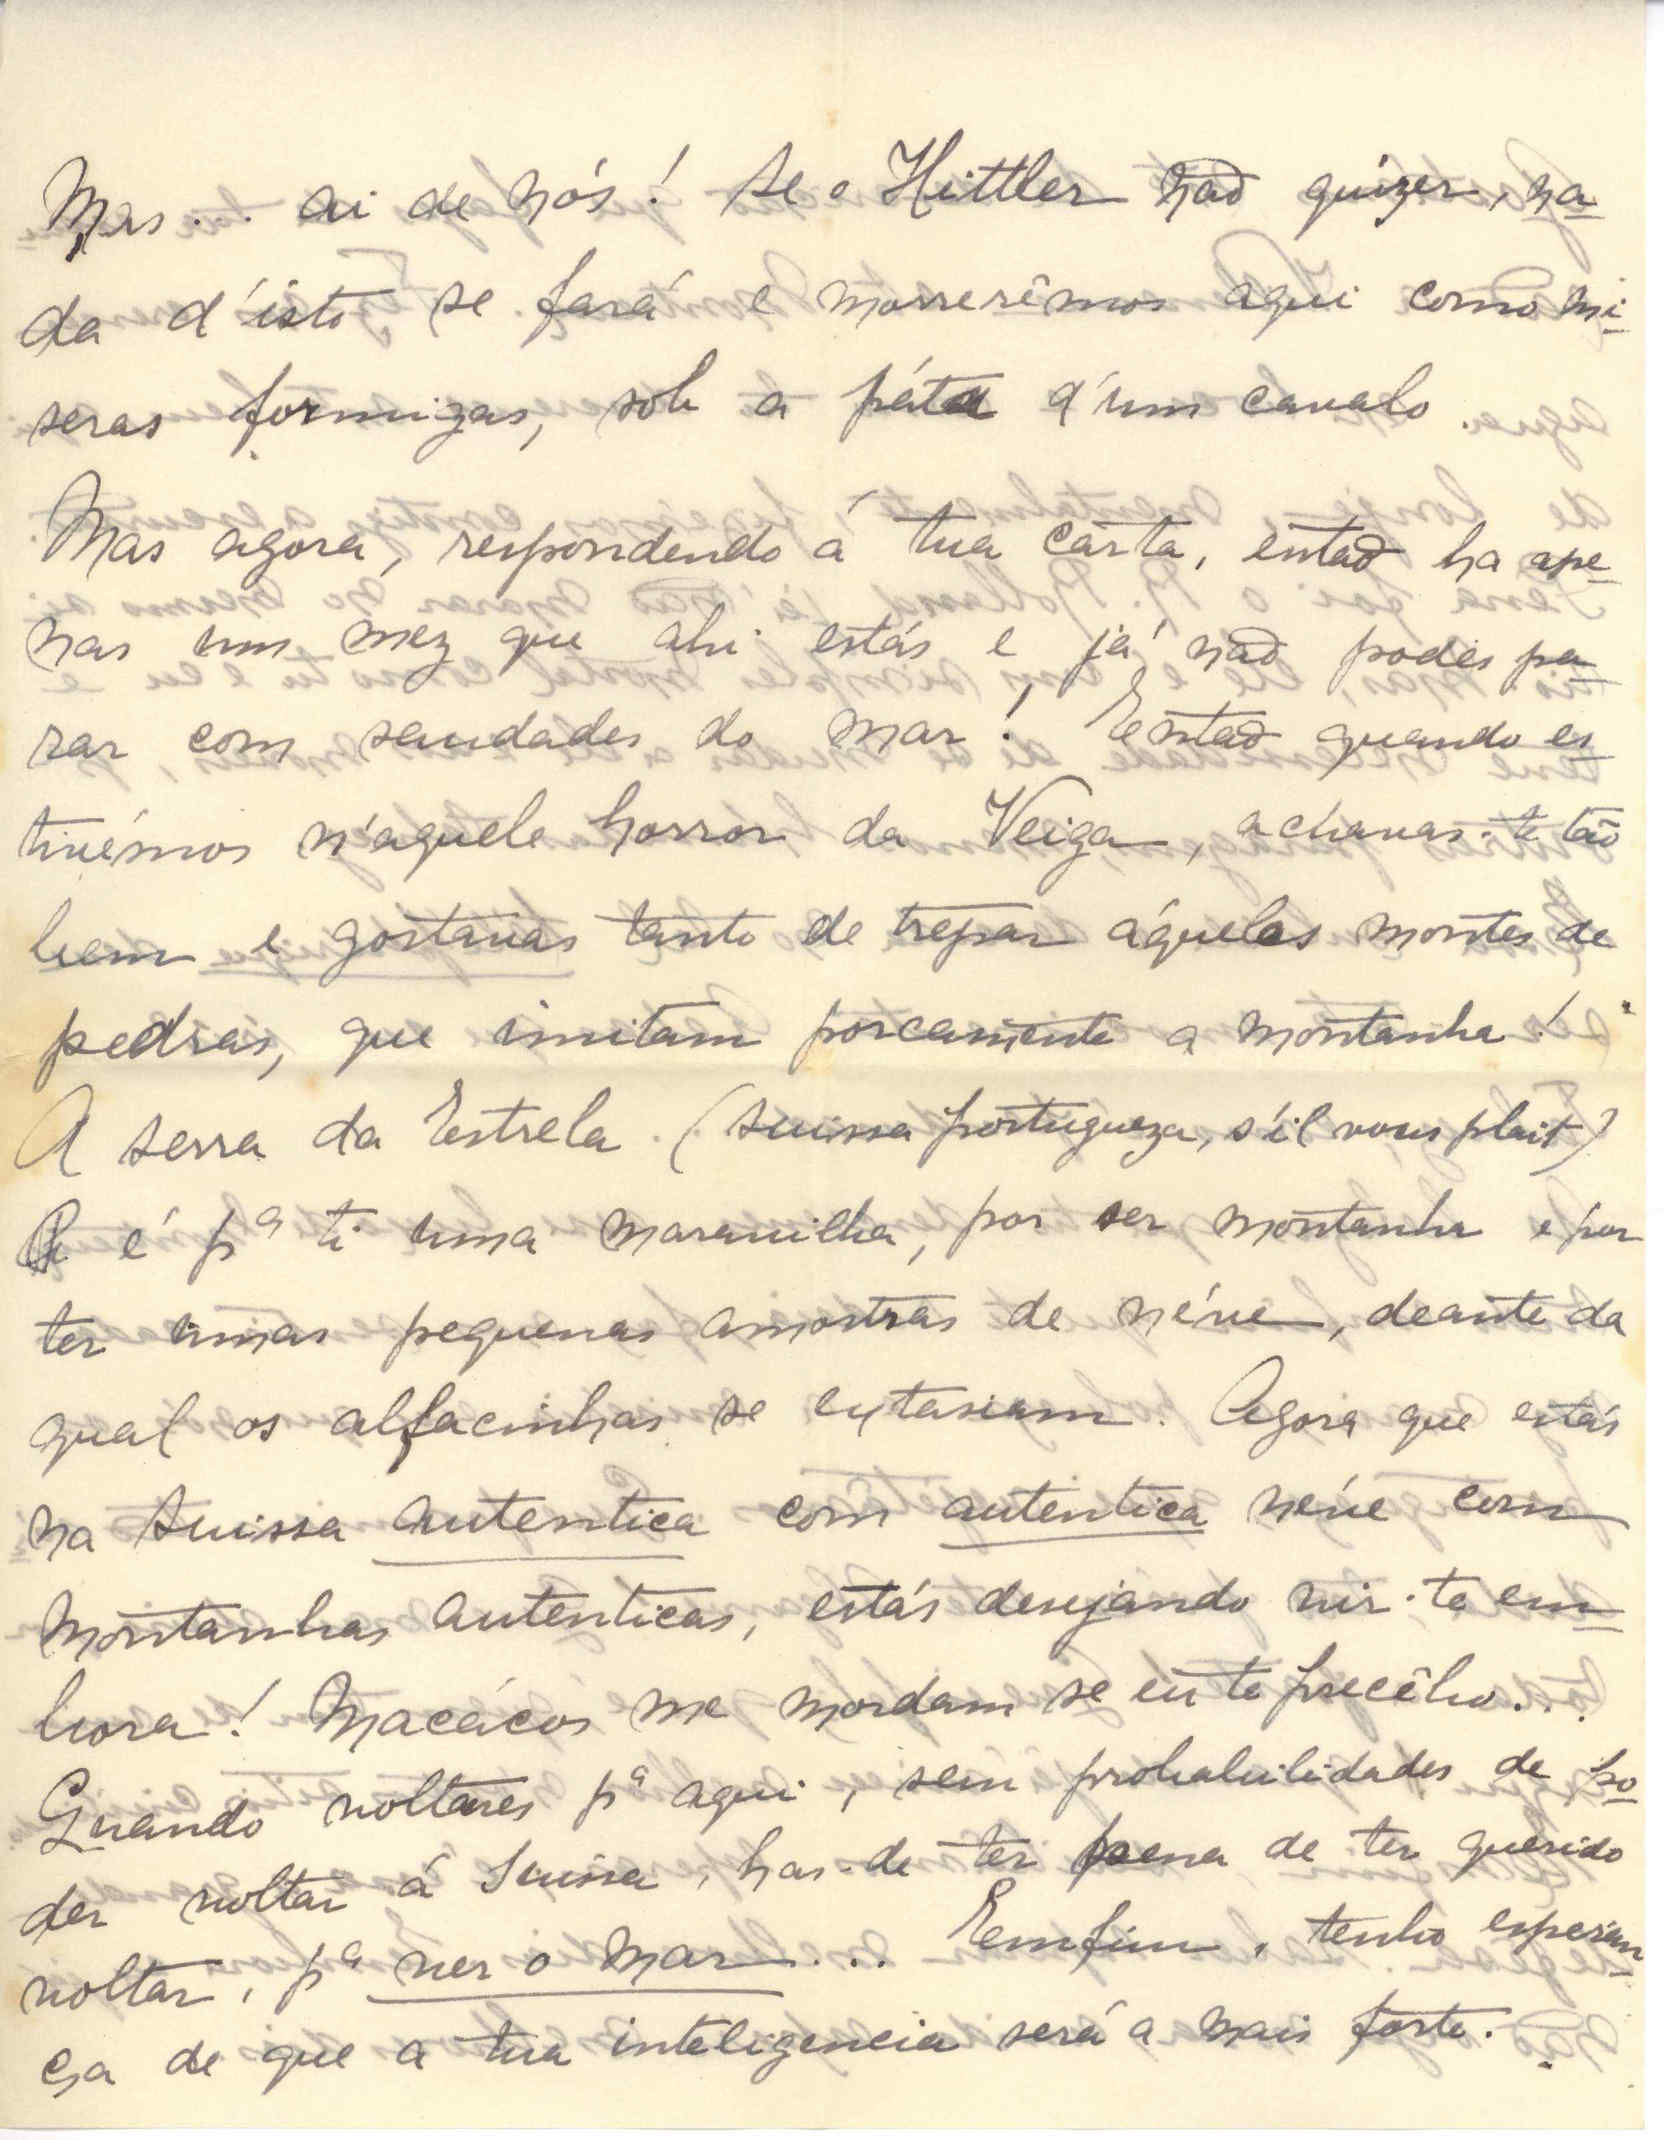 Mas... ai de nós! Se o Hittler não quizer, na-
da d'isto se fará e morrerêmos aqui como mi-
seras formigas, sob a páta d'um cavalo.
Mas agora, respondendo á tua carta, então ha ape-
nas um mez que ahi estás e já não podes pa-
rar com saudades do mar! Então quando es-
tivémos n'aquele horror da Veiga, achavas-te tão
bem e gostavas tanto de trepar áqueles montes de
pedras, que imitam porcamente a montanha!
A serra da Estrela (Suissa portugueza, s'il vous plait)
é pª ti uma maravilha, por ser montanha e por
ter umas pequenas amostras de néve, deante da
qual os alfacinhas se extasiam. Agora que estás
na Suissa autentica com autentica néve com
montanhas autenticas, estás desejando vir-te em-
bora! Macácos me mordam se eu te precêbo...
Quando voltares pª aqui, sem probabilidades de po-
der voltar á Suissa, has-de ter pena de ter querido
voltar, pª ver o mar... Emfim, tenho esperan-
ça de que a tua inteligencia será a mais forte.